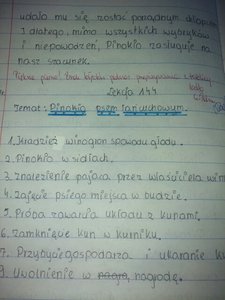 udało mu się zostać porządnym chłopcem
I dlatego, mimo wszystkich wybryków
i niepowodzeń, Pinokio zasługuje na
nasz szacunek.
Piękne
Lekcja 144
Temat: Pinokio psem łańcuchowym.
1. Kradzież winogron spowodu głodu.
2. Pinokio w sidłach.
3. Znalezienie pajaca przez właściciela
4. Zajęcie psiego miejsca w budzie.
5. Próba zawarcia układu z kunami.
6. Zamknięcie kun w kurniku.
7. Przybycie gospodarza i ukaranie
8. Uwolnienie w nagrodę.